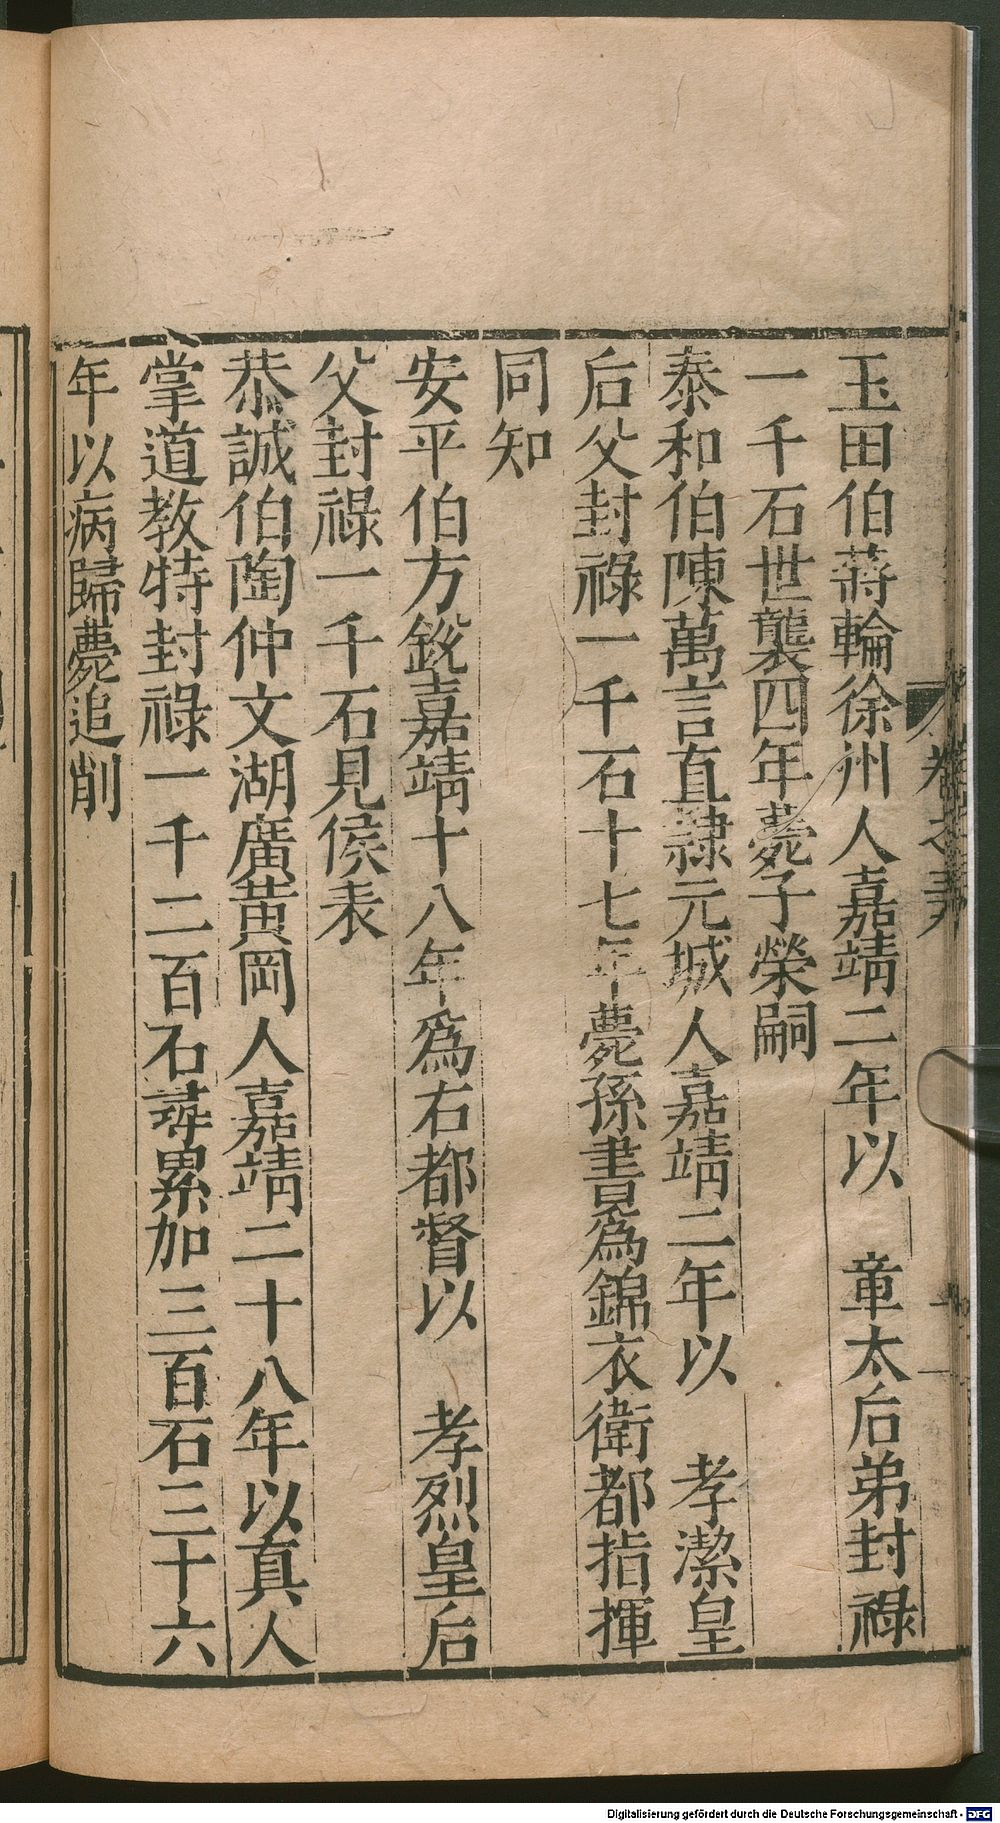 玉田伯蔣輪徐州人嘉靖二年以　章太后弟封祿
一千石世襲四年薨子榮嗣
泰和伯陳萬言直隸元城人嘉靖二年以　孝潔皇
后父封祿一千石十七年薨孫書爲錦衣衛都指揮
同知
安平伯方銳嘉靖十八年爲右都督以　孝烈皇后
父封祿一千石見侯表
恭誠伯陶仲文湖廣黃岡人嘉靖二十八年以真人
掌道教特封祿一千二百石尋累加三百石三十六
年以病歸薨追削
Digitalisierung gefördert durch die Deutsche Forschungsgemeinschaft - DFG